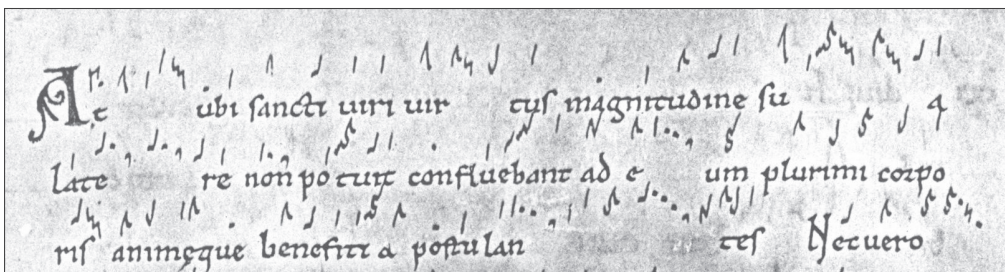 At ubi sancti uiri uir tus magnitudine su
late re non potuit confluebant ad e um plurimi corpo
ris animęque beneficia postulan tes Nec uero